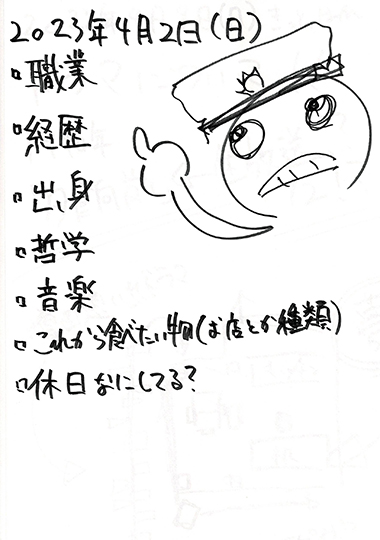 2023年4月2日(日)
□職業
□経歴
□出身
□哲学
□音楽
□これから食べたい物(お店とか種類)
□休日なにしてる?